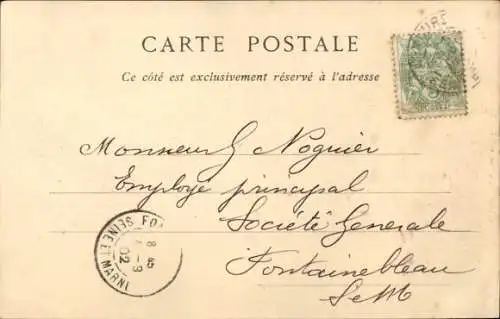 CARTE POSTALE
Ce côté est exclusivement réservé à l'adresse
Monsieur G Noguier
Employé principal
Société Generale
Fontainebleau
S et M
SEINE ET MARNE
8 45
7 - 9
02